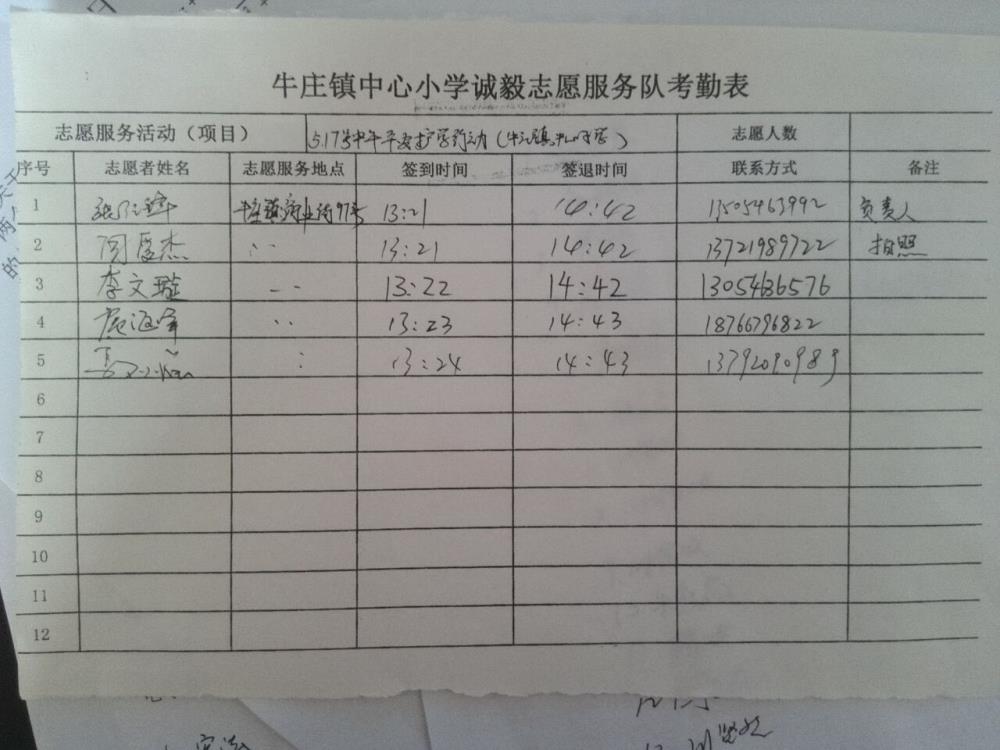 牛庄镇中心小学诚毅志愿服务队考勤表
志愿服务活动（项目） 5.17 中午平安护学行动（牛庄镇中心小学） 志愿人数
序号 志愿者姓名 志愿服务地点 签到时间 签退时间 联系方式 备注
1 牛庄镇商业街97号 13:21 14:42 13505463992 负责人
2 杰 13:21 14:42 13721989722 拍照
3 李文璇 13:22 14:42 13054636576
4 海峰 13:23 14:43 18766796822
5 13:24 14:43 13792090989
6
7
8
9
10
11
12